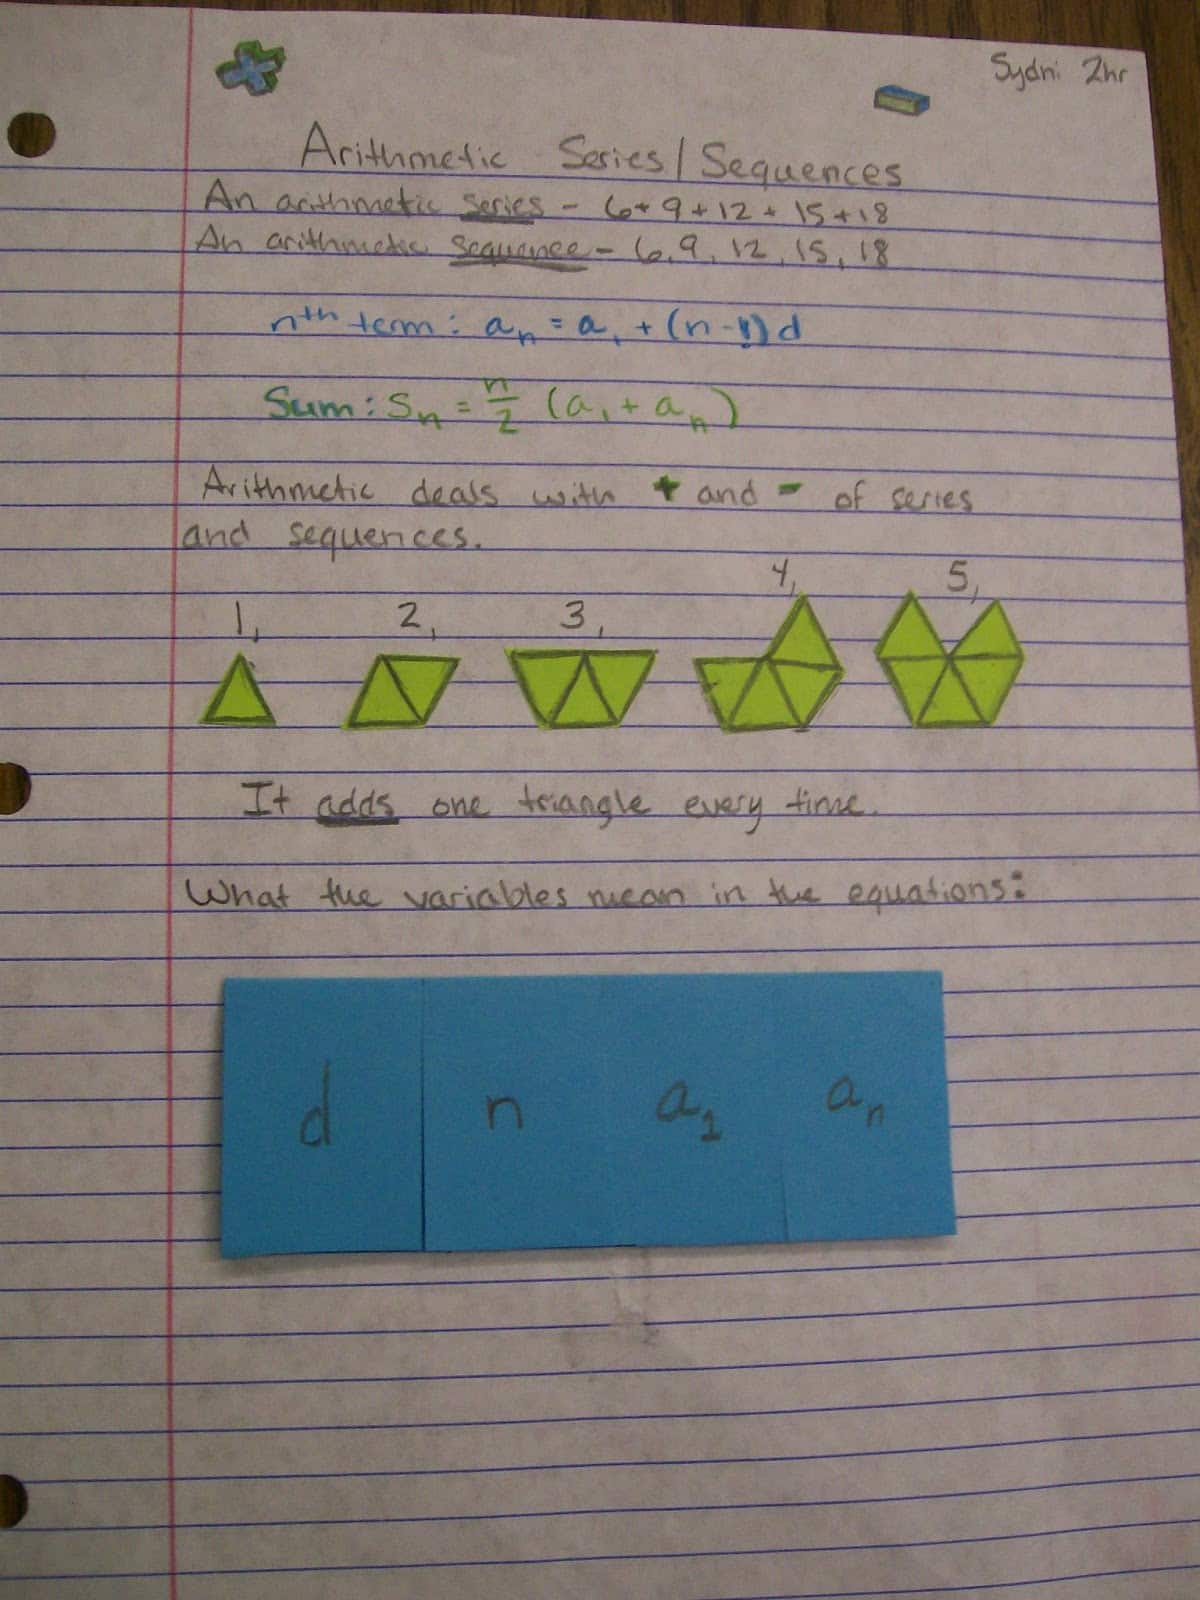 Sydni 2hr
Arithmetic Series/Sequences
An arithmetic series - 6+9+12+15+18
An arithmetic sequence - 6,9,12,15,18
nth term: aₙ = a₁ + (n-1)d
Sum: Sₙ = n/2 (a₁ + aₙ)
Arithmetic deals with + and - of series
and sequences.
1, 2, 3, 4, 5,
It adds one triangle every time.
What the variables mean in the equations:
d n a₁ aₙ